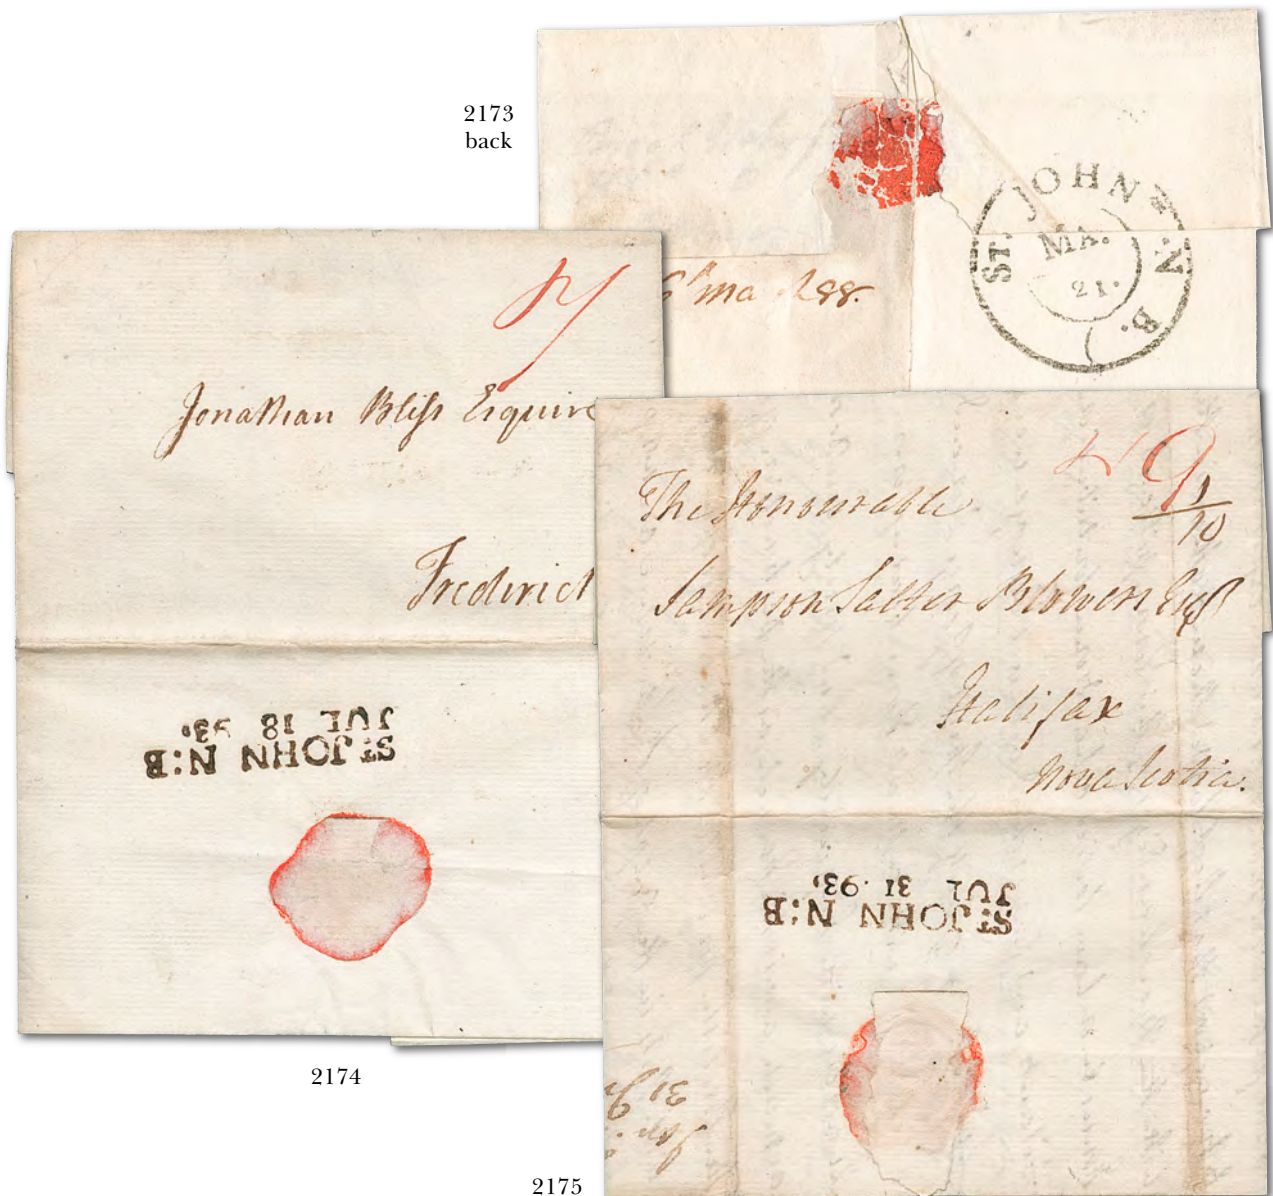 2173
back
ST. JOHN * N. B.
MA.
21.
Jonathan Bliss Esquire
Frederict
ST JOHN N:B
JUL 18 93,
2174
The Honourable
9
1/10
Sampson Salter Blowers Esqr
Halifax
Nova Scotia.
ST JOHN N:B
JUL 31 . 93,
31
2175